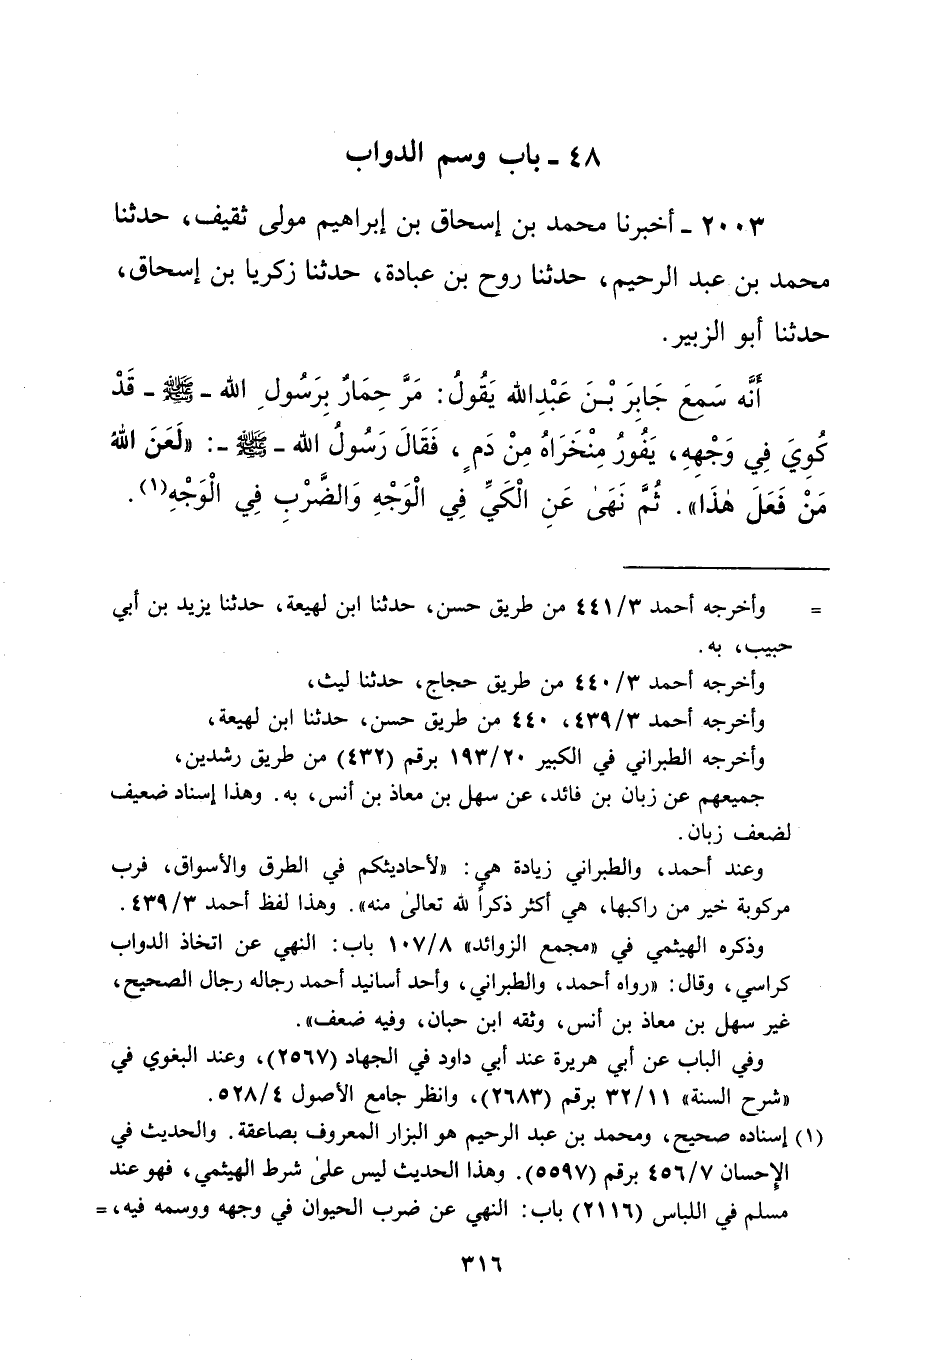 ٤٨ ـ باب وسم الدواب
٢٠٠٣ ـ أخبرنا محمد بن إسحاق بن إبراهيم مولى ثقيف، حدثنا
محمد بن عبد الرحيم، حدثنا روح بن عبادة، حدثنا زكريا بن إسحاق،
حدثنا أبو الزبير.
أَنَّه سَمِعَ جَابِرَ بْـنَ عَبْدِالله يَقُولُ: مَرَّ حِمَارٌ بِرَسُولِ الله ـ ﷺ ـ قَدْ
كُوِيَ فِي وَجْهِهِ، يَفُورُ مِنْخَرَاهُ مِنْ دَمٍ، فَقَالَ رَسُولُ الله ـ ﷺ ـ: «لَعَنَ اللهُ
مَنْ فَعَلَ هٰذَا». ثُمَّ نَهَىٰ عَنِ الْكَيِّ فِي الْوَجْهِ وَالضَّرْبِ فِي الْوَجْهِ(١).
= وأخرجه أحمد ٤٤١/٣ من طريق حسن، حدثنا ابن لهيعة، حدثنا يزيد بن أبي
حبيب، به.
وأخرجه أحمد ٤٤٠/٣ من طريق حجاج، حدثنا ليث،
وأخرجه أحمد ٤٣٩/٣، ٤٤٠ من طريق حسن، حدثنا ابن لهيعة،
وأخرجه الطبراني في الكبير ١٩٣/٢٠ برقم (٤٣٢) من طريق رشدين،
جميعهم عن زبان بن فائد، عن سهل بن معاذ بن أنس، به. وهذا إسناد ضعيف
لضعف زبان.
وعند أحمد، والطبراني زيادة هي: «لأحاديثكم في الطرق والأسواق، فرب
مركوبة خير من راكبها، هي أكثر ذكراً لله تعالىٰ منه». وهذا لفظ أحمد ٤٣٩/٣.
وذكره الهيثمي في «مجمع الزوائد» ١٠٧/٨ باب: النهي عن اتخاذ الدواب
كراسي، وقال: «رواه أحمد، والطبراني، وأحد أسانيد أحمد رجاله رجال الصحيح،
غير سهل بن معاذ بن أنس، وثقه ابن حبان، وفيه ضعف».
وفي الباب عن أبي هريرة عند أبي داود في الجهاد (٢٥٦٧)، وعند البغوي في
«شرح السنة» ٣٢/١١ برقم (٢٦٨٣)، وانظر جامع الأصول ٥٢٨/٤.
(١) إسناده صحيح، ومحمد بن عبد الرحيم هو البزار المعروف بصاعقة. والحديث في
الإحسان ٤٥٦/٧ برقم (٥٥٩٧). وهذا الحديث ليس علىٰ شرط الهيثمي، فهو عند
مسلم في اللباس (٢١١٦) باب: النهي عن ضرب الحيوان في وجهه ووسمه فيه، =
٣١٦